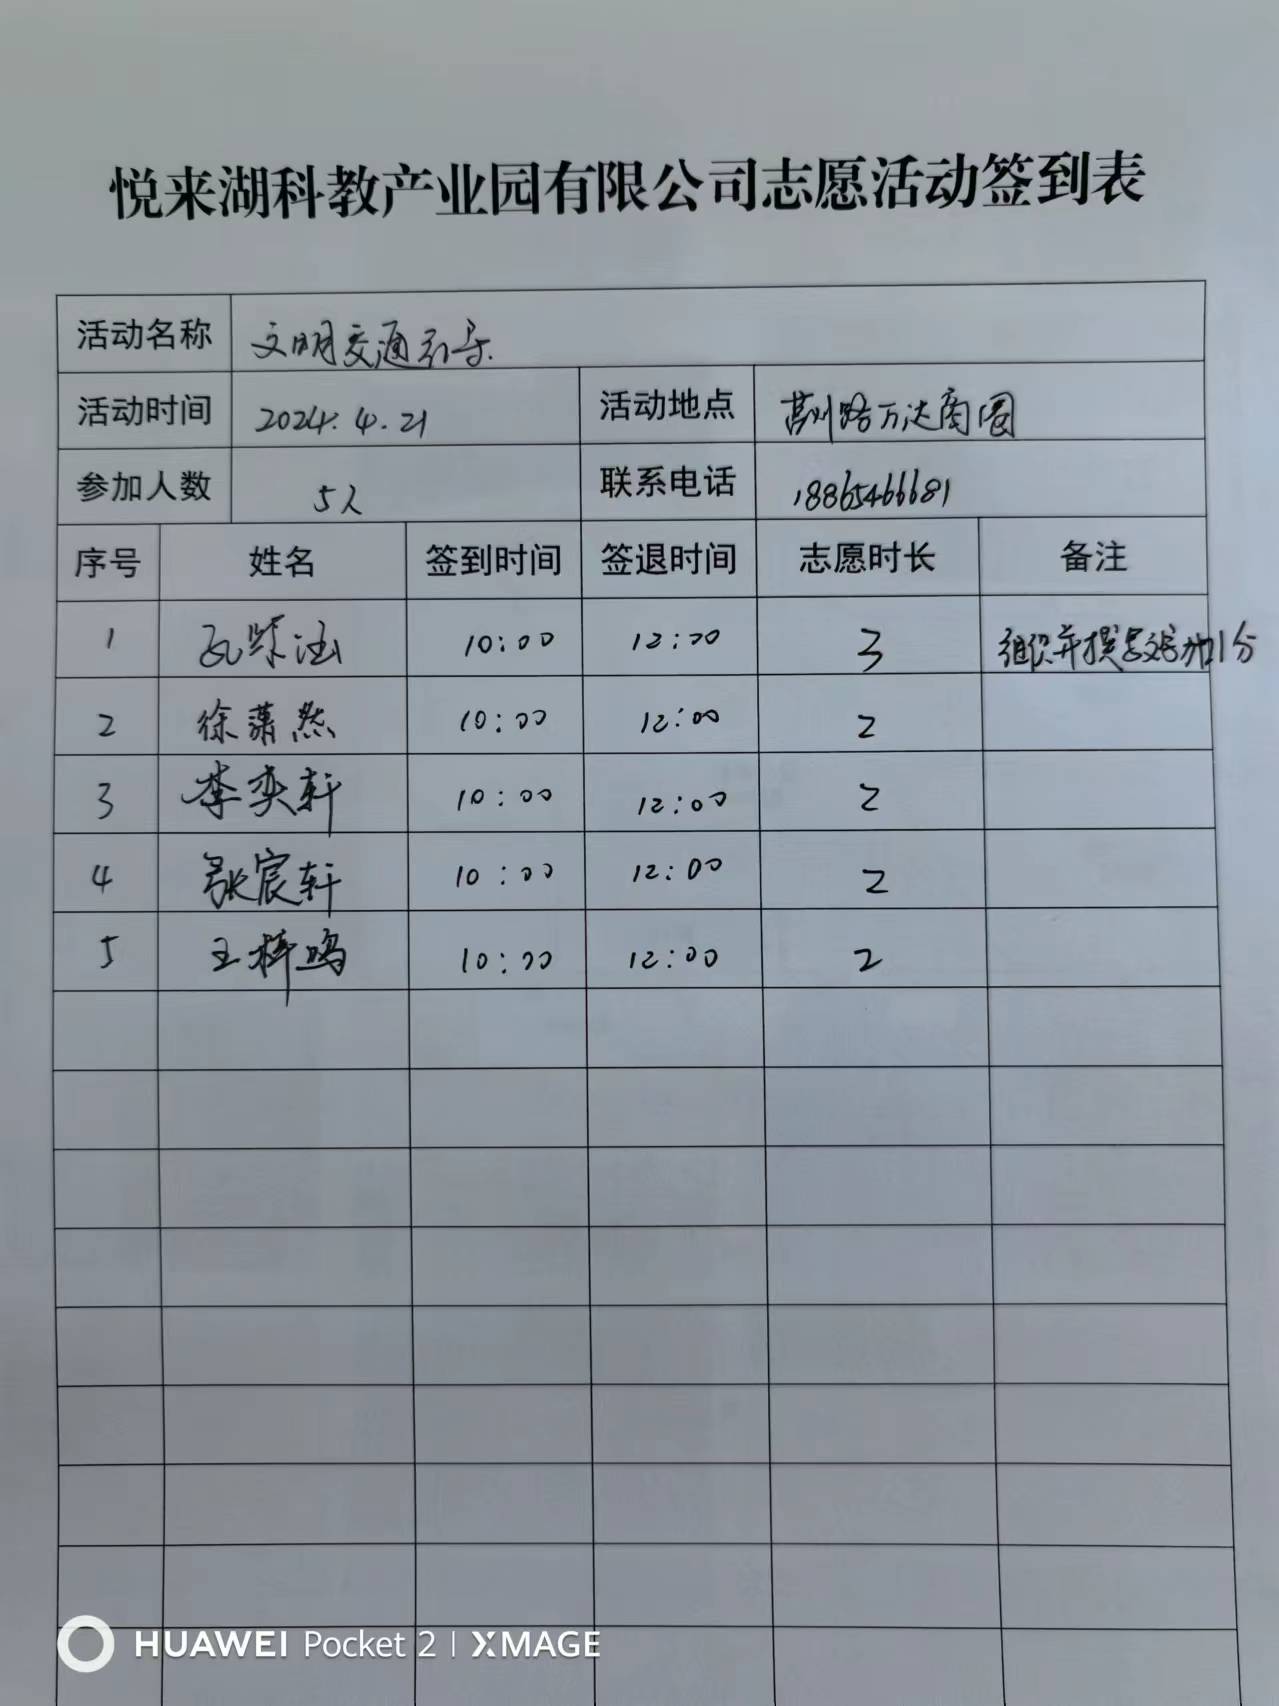 悦来湖科教产业园有限公司志愿活动签到表
活动名称 文明交通引导
活动时间 2024.4.21 活动地点 莒州路万达商圈
参加人数 5人 联系电话 18865466681
序号 姓名 签到时间 签退时间 志愿时长 备注
1 瓦紫涵 10:00 12:00 3 组织并撰写文字加1分
2 徐萧然 10:00 12:00 2
3 李奕轩 10:00 12:00 2
4 张宸轩 10:00 12:00 2
5 王梓鸣 10:00 12:00 2
HUAWEI Pocket 2 | XMAGE